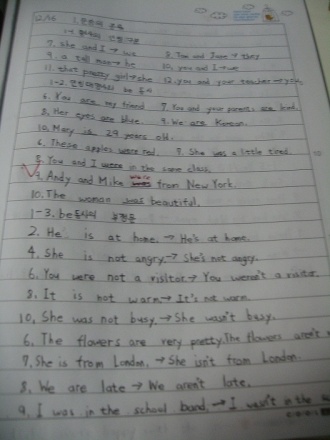 7. She and I → we 8. Tom and Jane → they
9. a tall man → he 10. you and I → we
11. that pretty girl → she 12. you and your teacher → you
6. You are my friend 7. You and your parents are kind.
8. Her eyes are blue. 9. We are Korean.
10. Mary is 29 years old.
6. These apples were red. 7. She was a little tired.
8. You and I were in the same class.
9. Andy and Mike were from New York.
10. The woman was beautiful.
1-3. be동사의 부정문
2. He is at home. → He's at home.
4. She is not angry. → She's not angry.
6. You were not a visitor → You weren't a visitor.
8. It is not warm → It's not warm.
10. She was not busy. → She wasn't busy.
6. The flowers are very pretty. The flowers aren't
7. She is from London. → She isn't from London.
8. We are late → We aren't late.
9. I was in the school band. → I wasn't in the